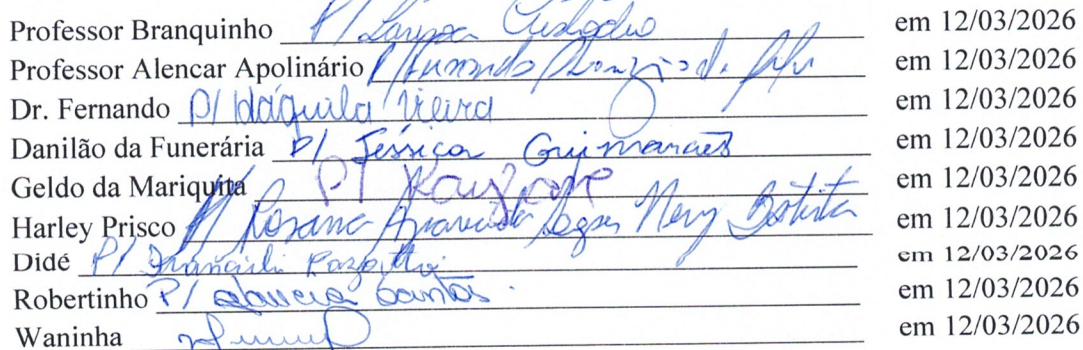 Professor Branquinho P/ Larissa Custódio em 12/03/2026
Professor Alencar Apolinário P/ em 12/03/2026
Dr. Fernando P/ Idáquila Vieira em 12/03/2026
Danilão da Funerária P/ Jéssica Guimarães em 12/03/2026
Geldo da Mariquita P/ em 12/03/2026
Harley Prisco P/ Rosana Aparecida Nery Batista em 12/03/2026
Didé P/ em 12/03/2026
Robertinho P/ Santos em 12/03/2026
Waninha em 12/03/2026